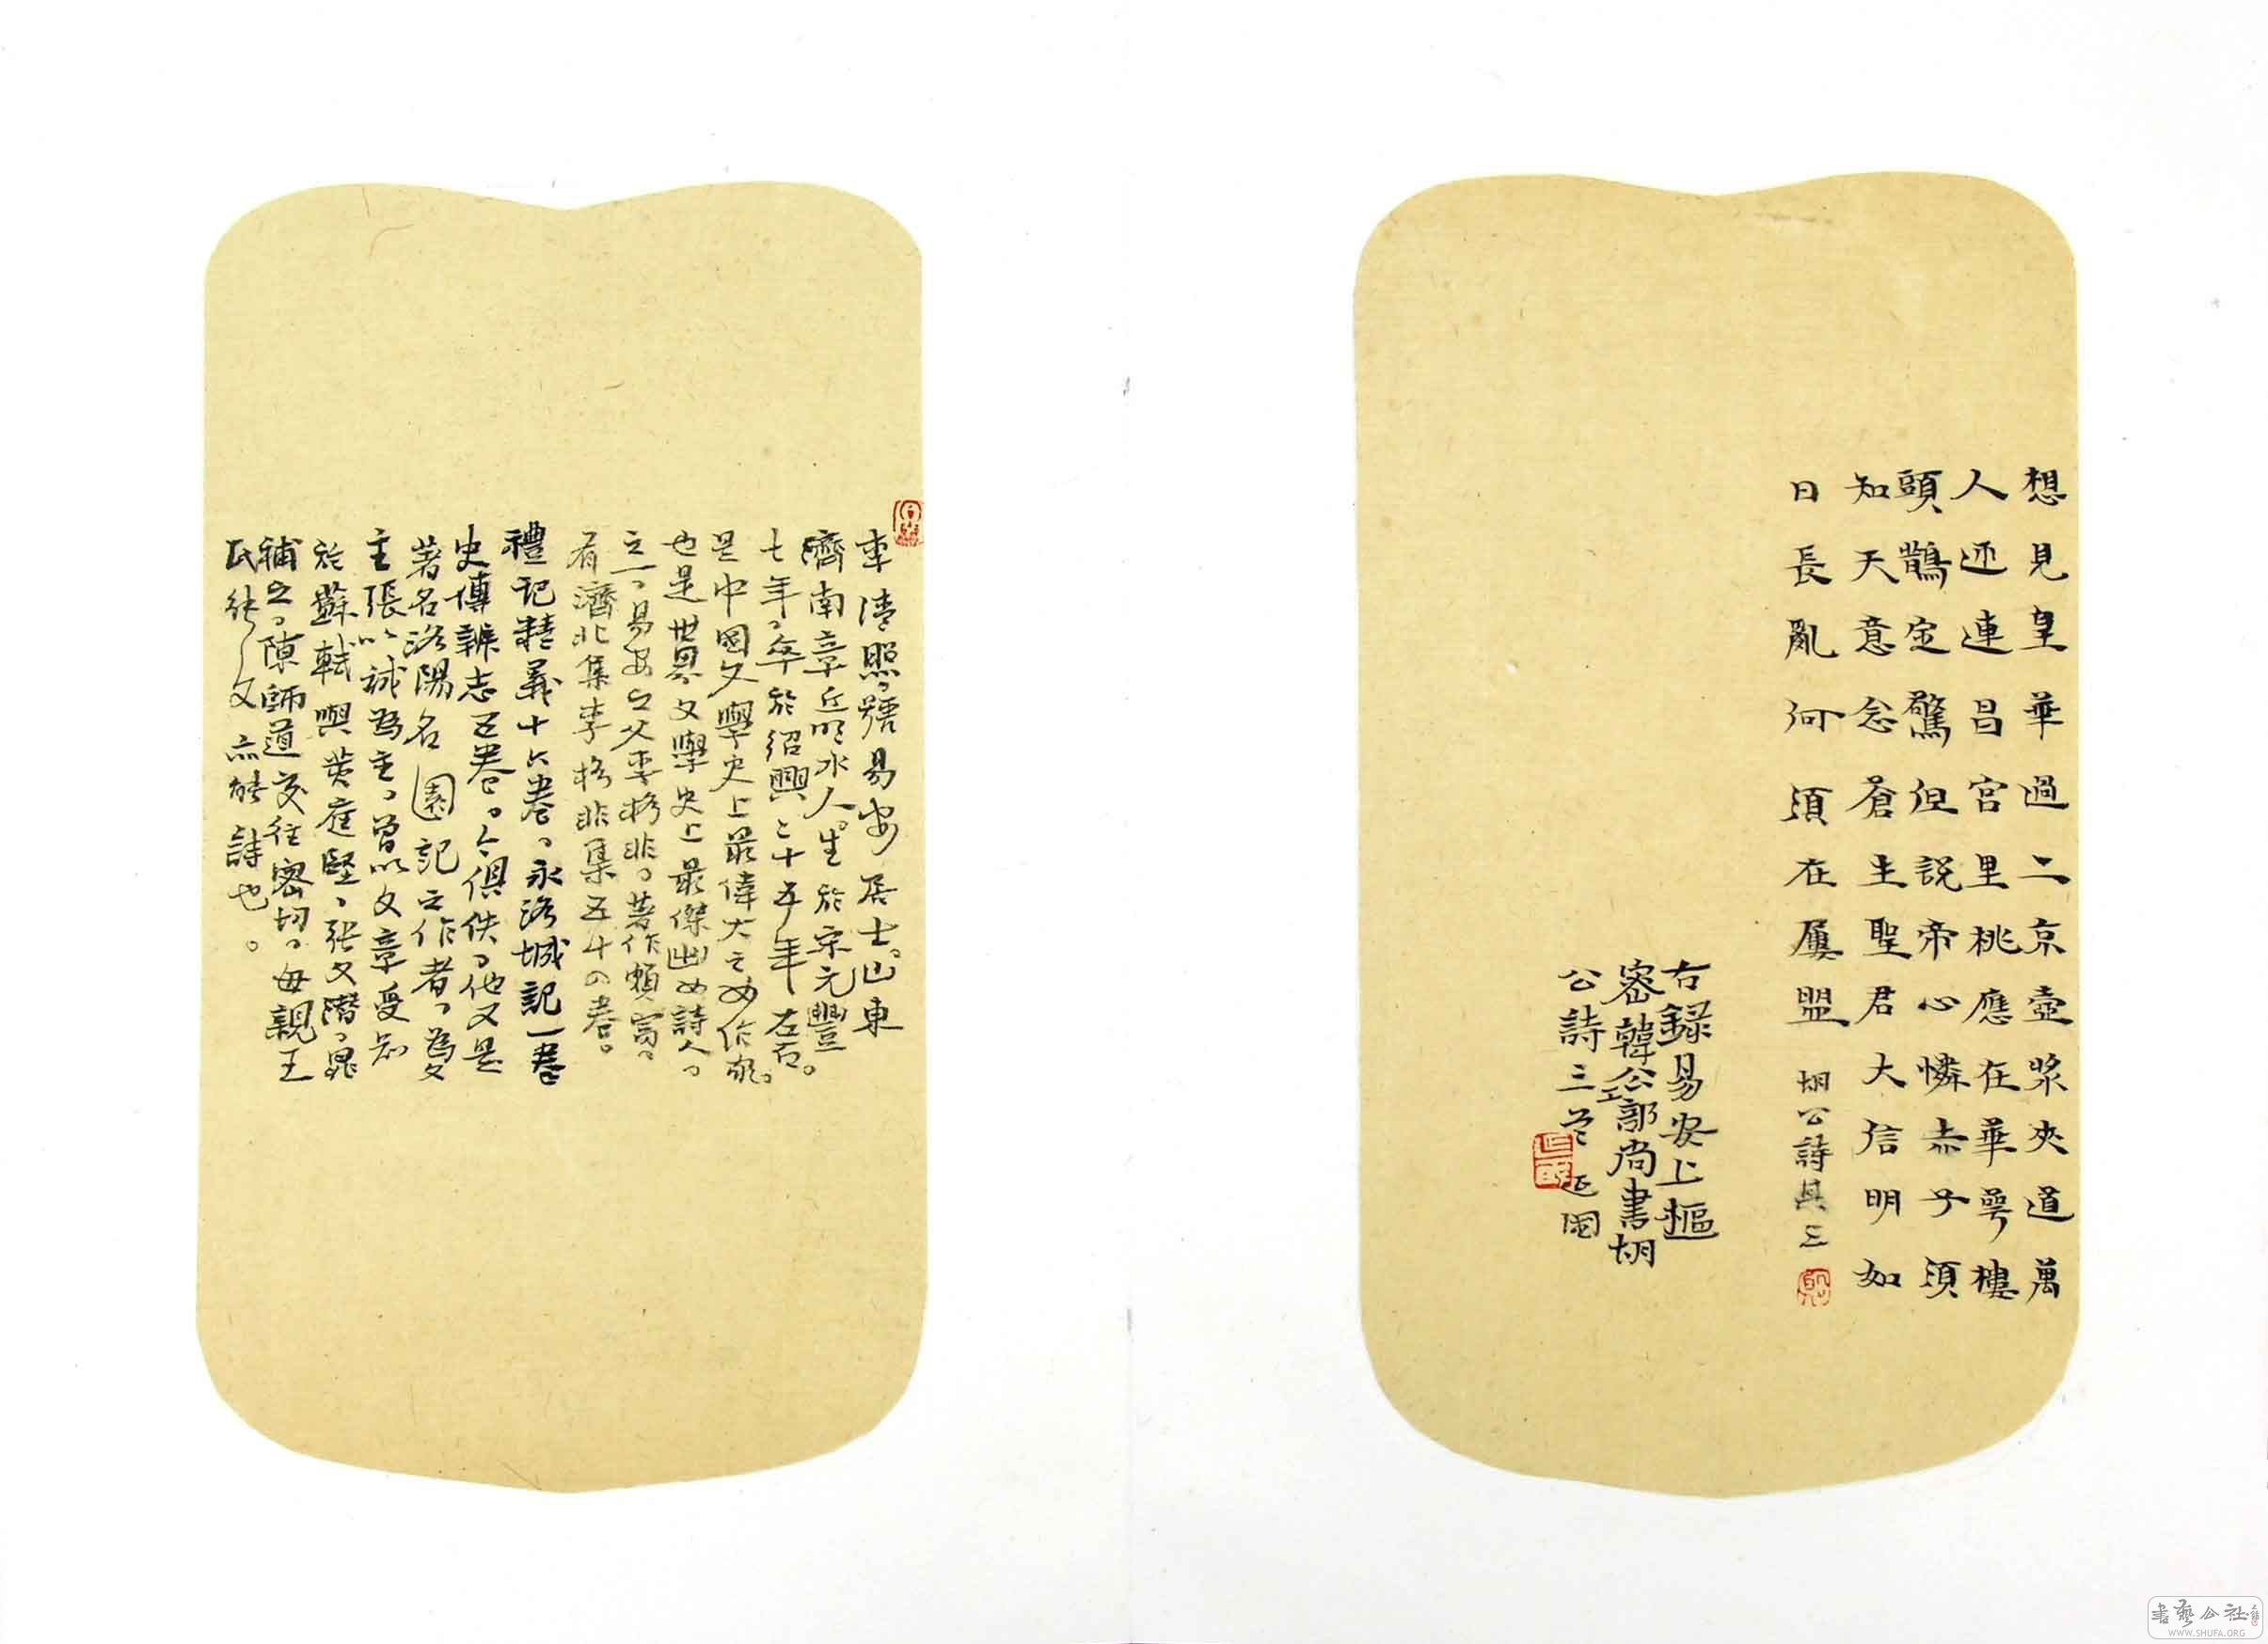 想見皇華過二京壺漿夾道萬
人迎連昌宮里桃應在華萼樓
頭鵲定驚但説帝心憐赤子須
知天意念蒼生聖君大信明如
日長亂何須在屢盟
胡公詩其三
右録易安上樞
密韓公工部尚書胡
公詩三首 延国
李清照、號易安居士。山東
濟南章丘明水人。生於宋元豐
七年、卒於紹興二十五年左右。
是中國文學史上最偉大之女作家。
也是世界文學史上最傑出女詩人
之一、易安之父李格非、著作頗富、
有濟北集李格非集五十四卷。
禮記精義十六卷、永洛城記一卷
史傳辨志五卷。今俱佚、他又是
著名洛陽名園記之作者、爲文
主張以誠爲主、曾以文章受知
於蘇軾與黄庭堅、張文潛、晁
補之、陳師道交往密切。母親王
氏能文亦能詩也。
書藝公社
WWW.SHUFA.ORG